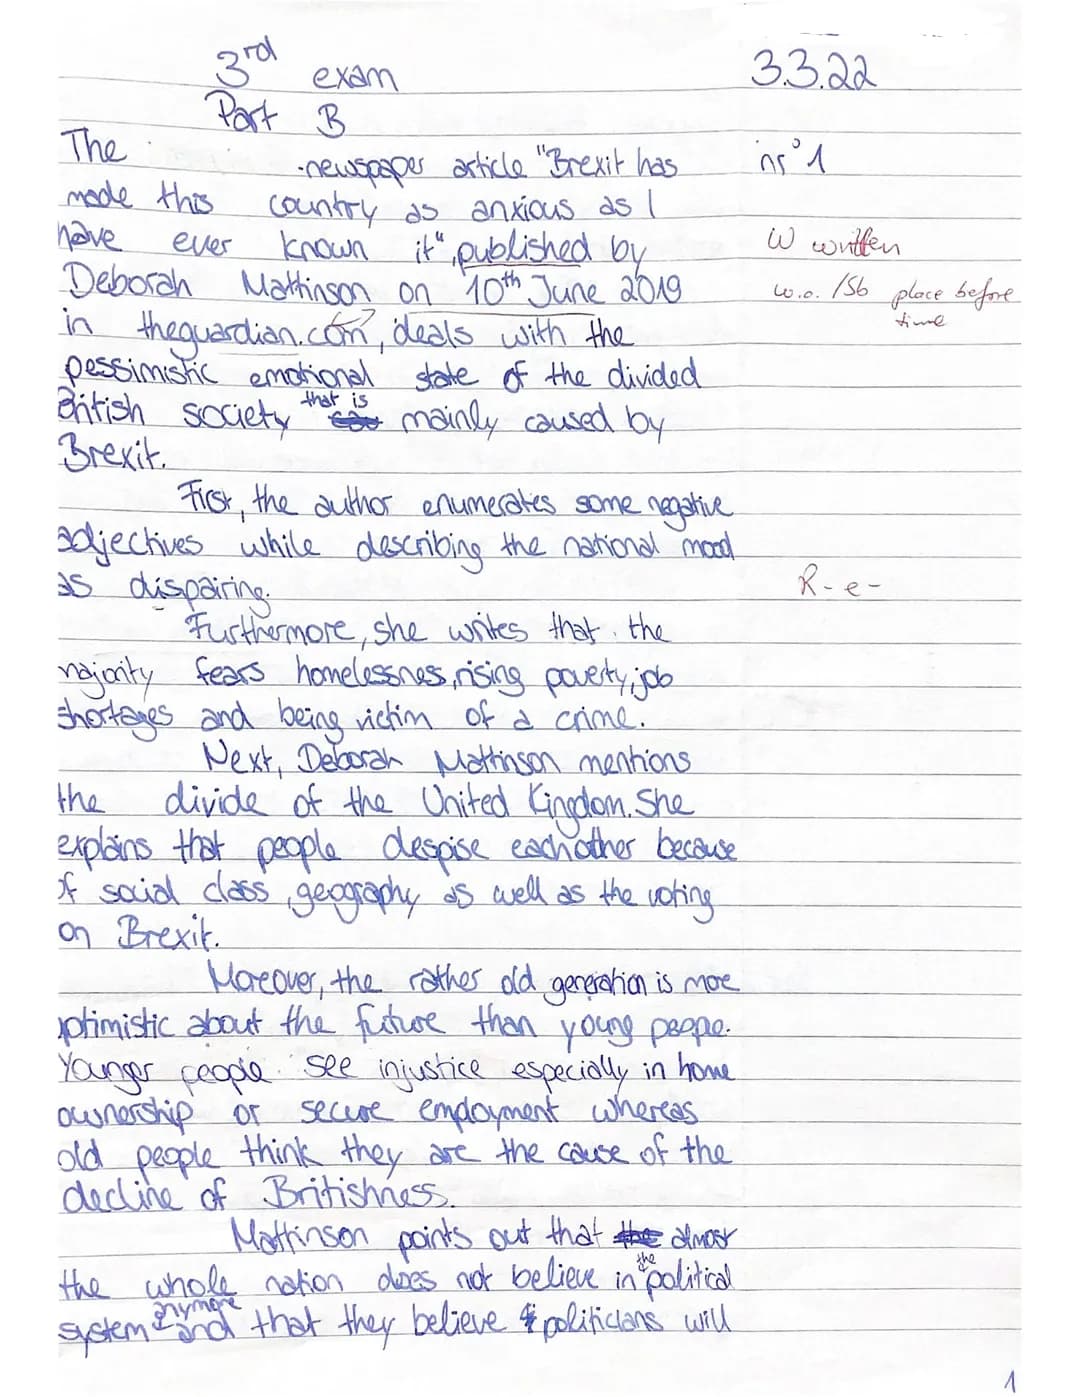 3rd exam 3.3.22
Part B
The newspaper article "Brexit has nr°1
made this country as anxious as I
have ever known it", published by W written
Deborah Mattinson on 10th June 2019 w.o. /Sb place before
in theguardian.com, deals with the time
pessimistic emotional state of the divided
British society that is mainly caused by
Brexit.
First, the author enumerates some negative
adjectives while describing the national mood
as dispairing. R-e-
Furthermore, she writes that the
majority fears homelessness, rising poverty, job
shortages and being victim of a crime.
Next, Deborah Mattinson mentions
the divide of the United Kingdom. She
explains that people despise eachother because
of social class, geography as well as the voting
on Brexit.
Moreover, the rather old generation is more
optimistic about the future than young peope.
Younger people see injustice especially in home
ownership or secure employment whereas
old people think they are the cause of the
decline of Britishness.
Mattinson points out that almost
the whole nation does not believe in the political
system anymore and that they believe politicians will
1